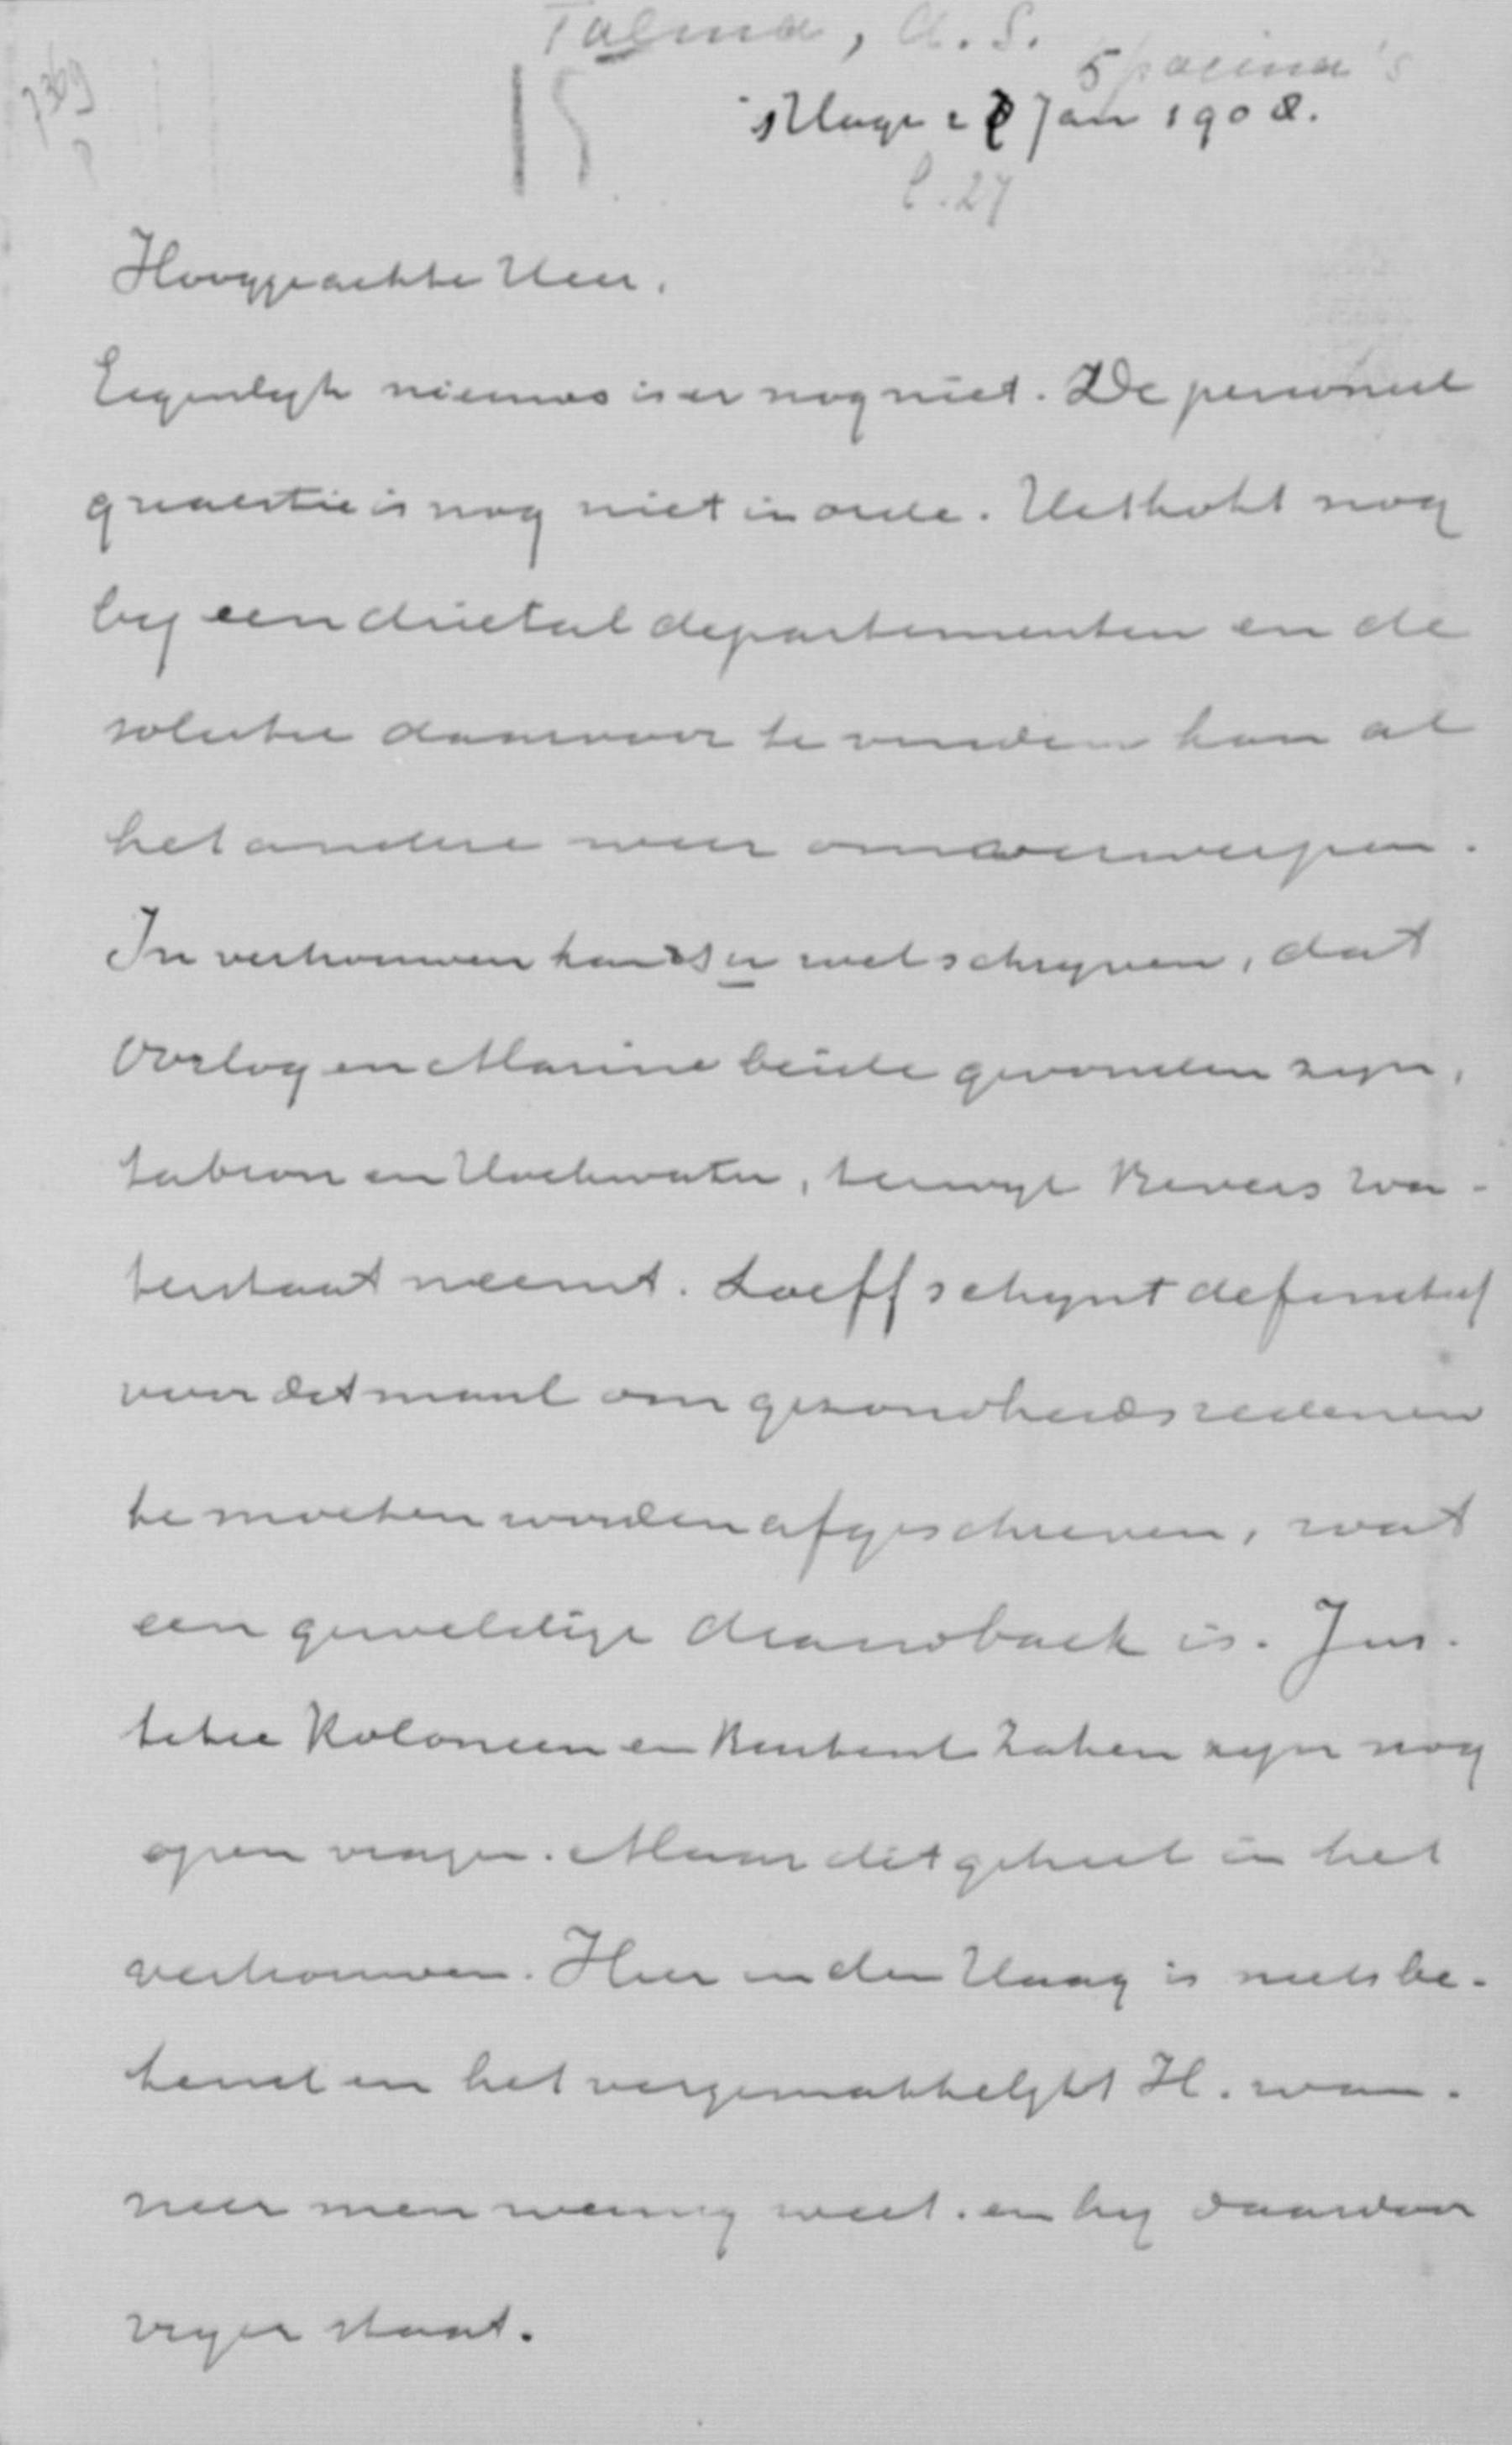 Talma, A.S.
5 pagina's
7369
15
's Hage 27 Jan 1908.
l. 27
Hooggeachte Heer.
Eigenlijk nieuws is er nog niet. De personeel
quaestie is nog niet in orde. Het hokt nog
bij een drietal departementen en de
solutie daarvoor te vinden kan al
het andere weer omverwerpen.
In vertrouwen kan ik U wel schrijven, dat
Oorlog en Marine beide gevonden zijn,
Sabron en Hoekwater, terwijl Bevers Wa-
terstaat neemt. Loeff schijnt definitief
voor ditmaal om gezondheidsredenen
te moeten worden afgeschreven, wat
een geweldige drawback is. Jus-
titie Kolonien en Buitenl. Zaken zijn nog
open vragen. Maar dit geheel in het
vertrouwen. Hier in den Haag is niets be-
kend en het vergemakkelijkt H. wan-
neer men weinig weet. en hij daardoor
vrijer staat.